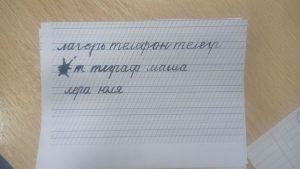 лагерь телефон телегр
т телграф маша
лера юля